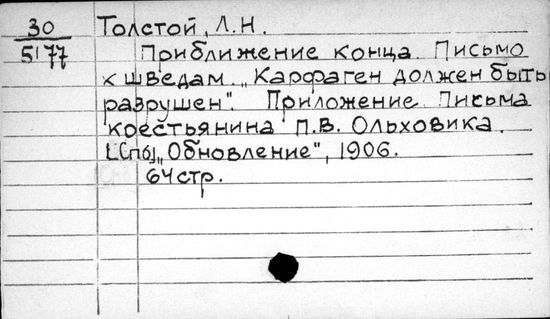 30 Толстой, Л.Н.
5177 Приближение конца. Письмо
к шведам. „Карфаген должен быть
разрушен". Приложение. Письма
крестьянина П.В. Ольховика.
[Спб], „Обновление", 1906.
64 стр.